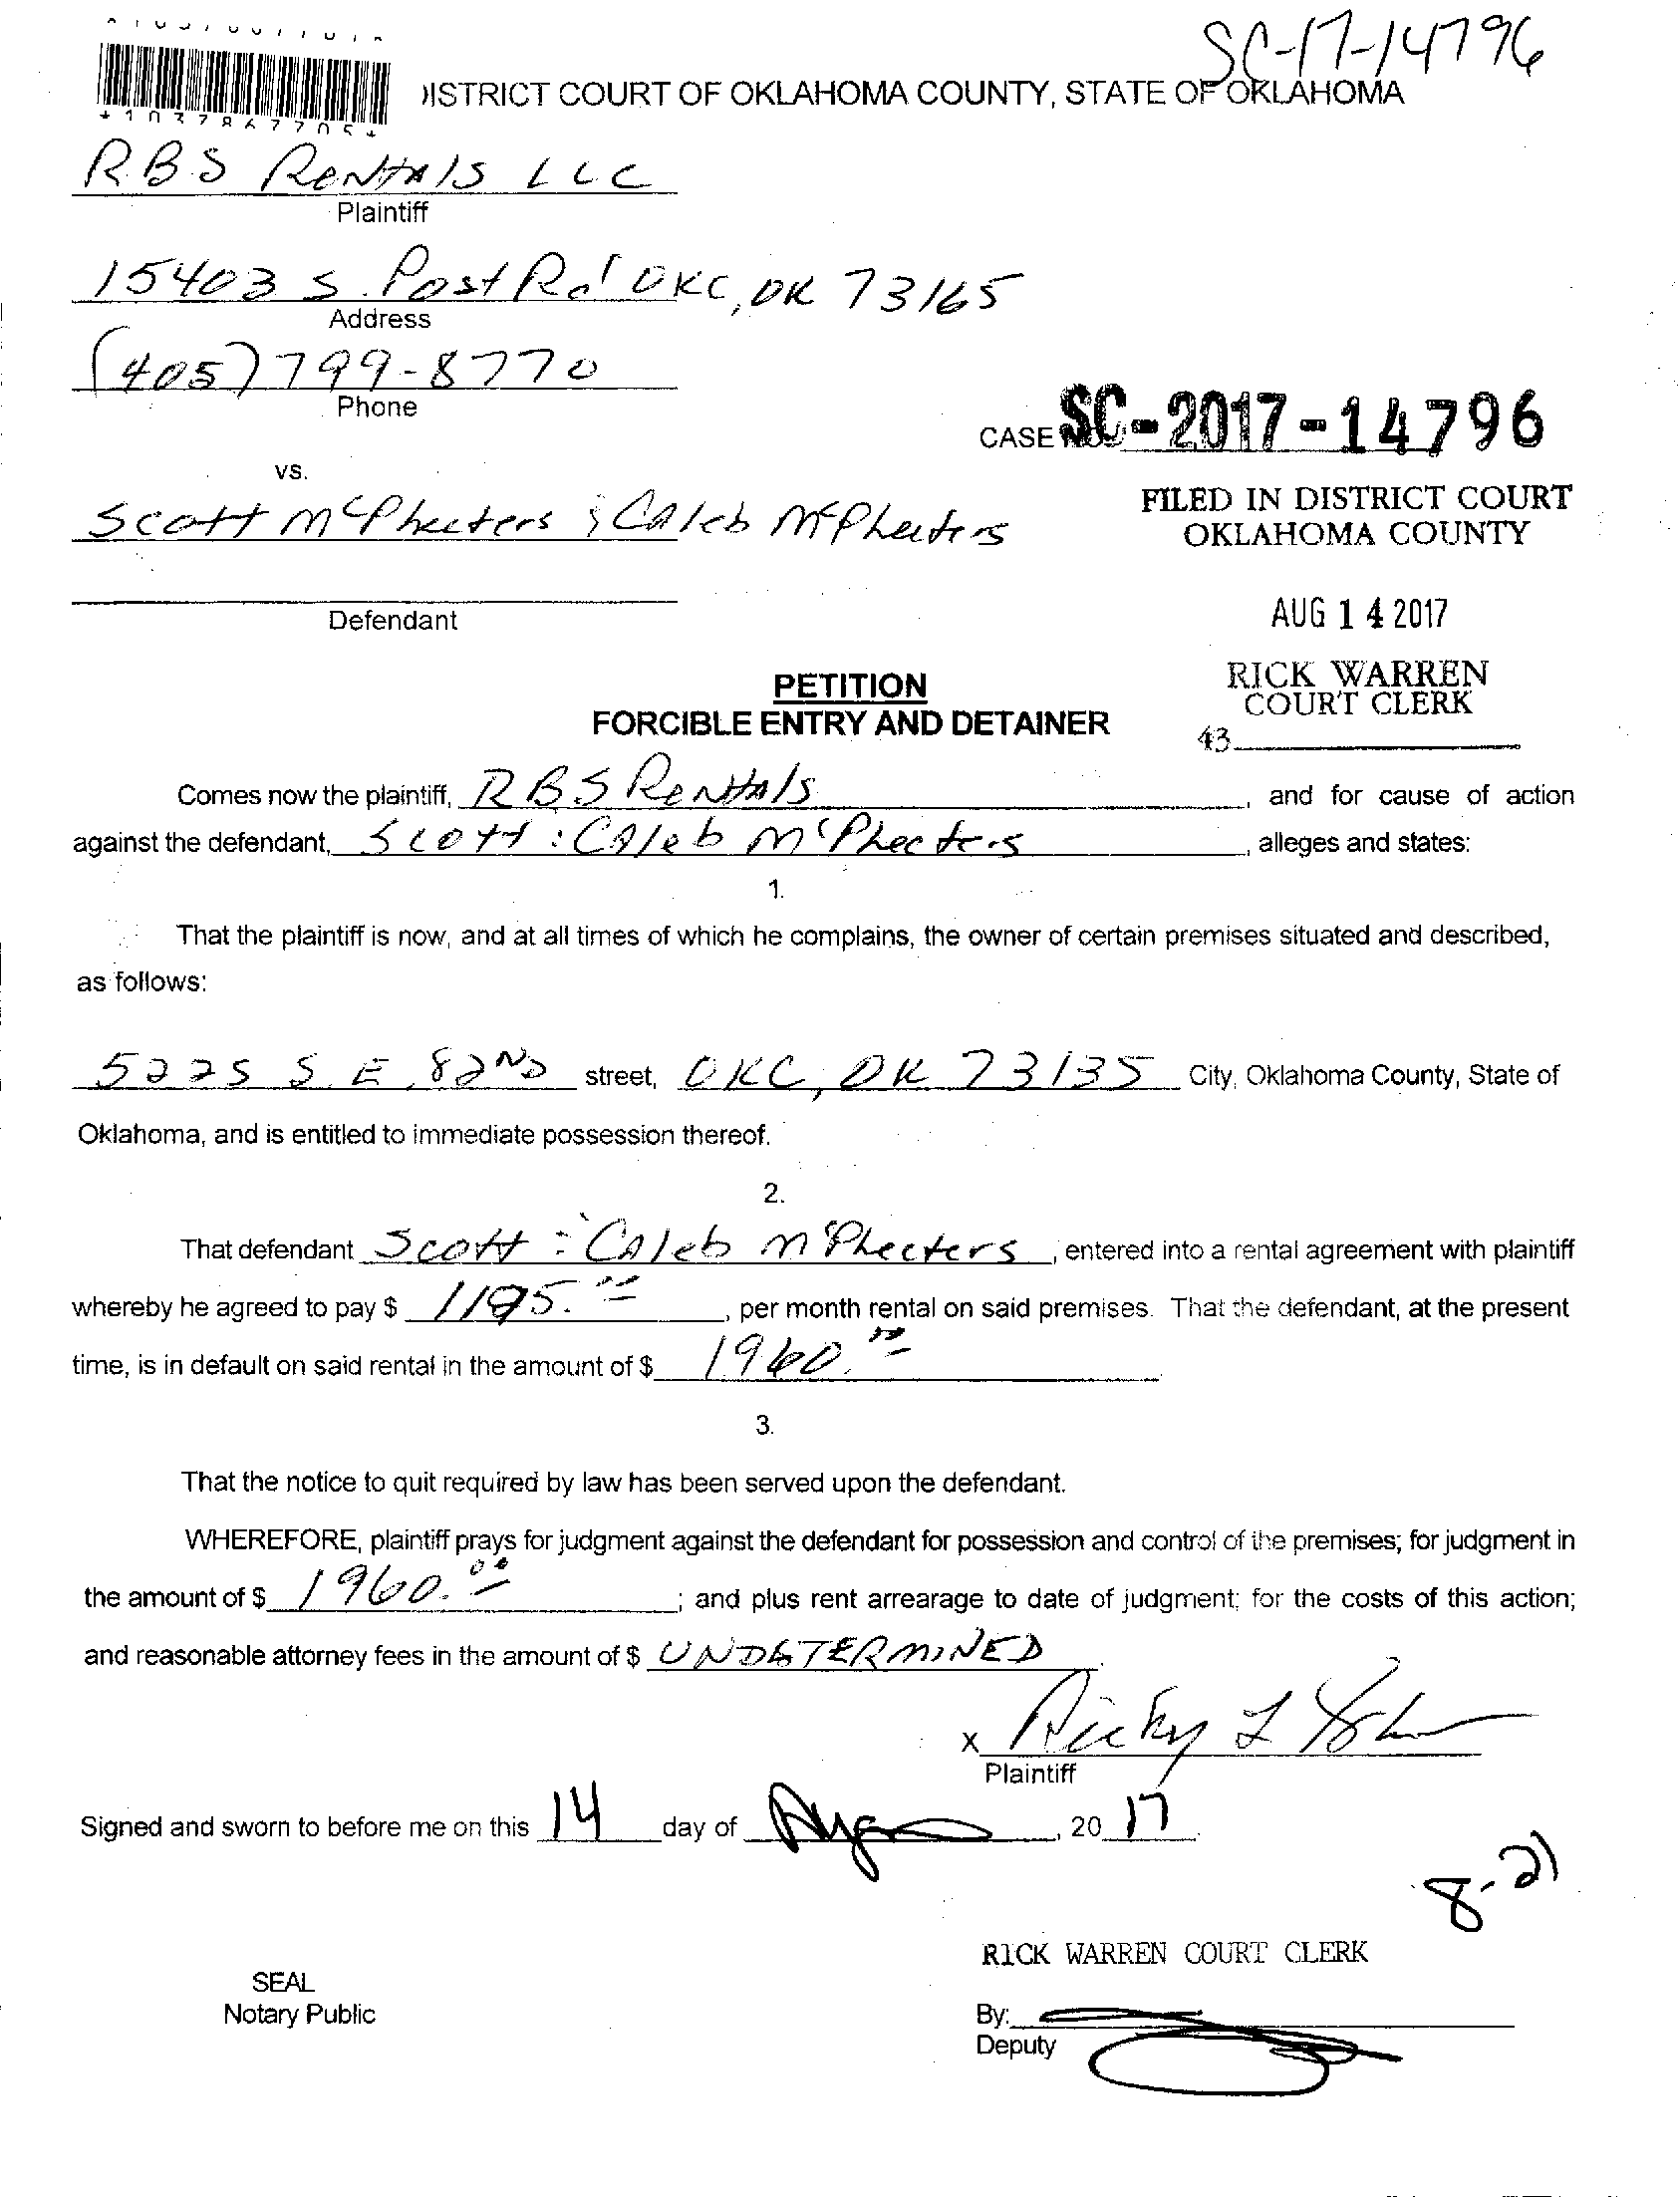 SC-17-14796
DISTRICT COURT OF OKLAHOMA COUNTY, STATE OF OKLAHOMA
R.B.S Rentals LLC
Plaintiff
15403 S. Post Rd OKC, OK 73165
Address
(405) 799-8770
Phone
CASE NO. SC-2017-14796
vs.
Scott McPheeters & Caleb McPheeters
FILED IN DISTRICT COURT
OKLAHOMA COUNTY
Defendant
AUG 14 2017
RICK WARREN
COURT CLERK
43
PETITION
FORCIBLE ENTRY AND DETAINER
Comes now the plaintiff, RBS Rentals, and for cause of action
against the defendant, Scott & Caleb McPheeters, alleges and states:
1.
That the plaintiff is now, and at all times of which he complains, the owner of certain premises situated and described,
as follows:
5225 S.E. 82ND street, OKC, OK 73135 City, Oklahoma County, State of
Oklahoma, and is entitled to immediate possession thereof.
2.
That defendant Scott & Caleb McPheeters, entered into a rental agreement with plaintiff
whereby he agreed to pay $ 1195.00, per month rental on said premises. That the defendant, at the present
time, is in default on said rental in the amount of $ 1960.00
3.
That the notice to quit required by law has been served upon the defendant.
WHEREFORE, plaintiff prays for judgment against the defendant for possession and control of the premises; for judgment in
the amount of $ 1960.00; and plus rent arrearage to date of judgment; for the costs of this action;
and reasonable attorney fees in the amount of $ UNDETERMINED
X Ricky L
Plaintiff
Signed and sworn to before me on this 14 day of , 20 17
8-21
RICK WARREN COURT CLERK
SEAL
Notary Public
By:
Deputy